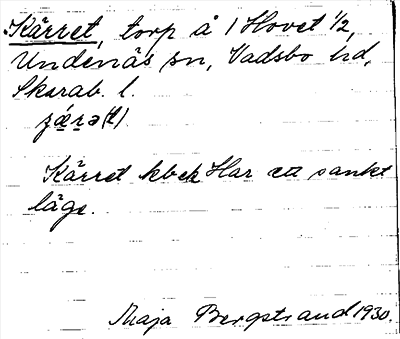 Kärret, torp å 1 Hovet 1/2,
Undenäs sn, Vadsbo hd,
Skarab. l.
Kärret kbek Har ett sankt
läge.
Maja Bergstrand 1930.